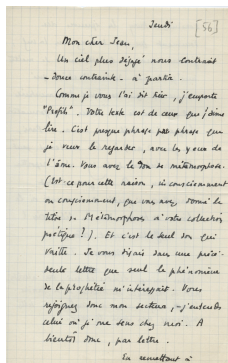 Jeudi
[56]
Mon cher Jean,
Un ciel plus dégagé nous contraint
- douce contrainte - à partir.
Comme je vous l'ai dit hier, j'emporte
"Profils". Votre texte est de ceux que j'aime
lire. C'est presque phrase par phrase que
je veux le regarder, avec les yeux de
l'âme. Vous avez le don de métamorphose.
(Est-ce pour cette raison, inconsciemment
ou consciemment, que vous avez donné le
titre de Métamorphoses à votre collection
poétique ?). Et c'est le seul don qui
vaille. Je vous disais dans une précé-
dente lettre que seul le phénomène
de la prophétie m'intéressait. Vous
rejoignez donc mon secteur, - j'entends
celui où je me sens chez moi. A
bientôt donc, par lettre.
En remettant à